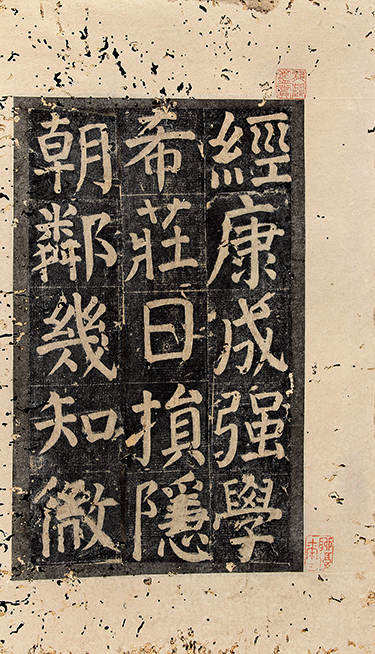 經康成强學
希莊日損隱
朝鄰幾知微